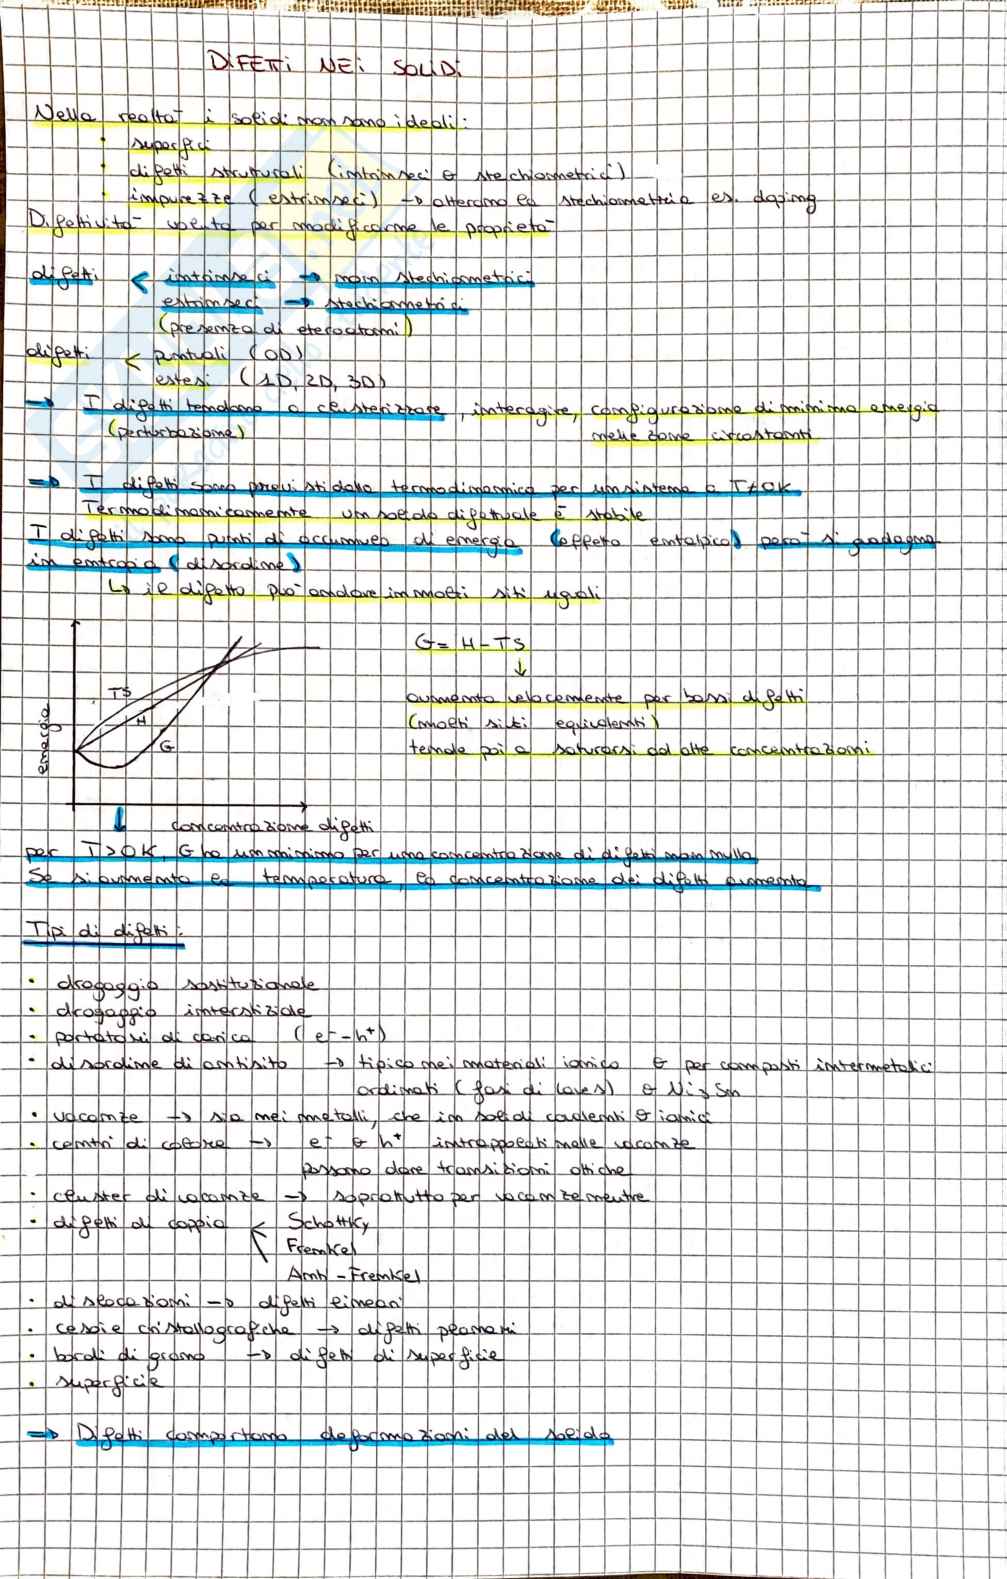 DIFETTI NEI SOLIDI
Nella realtà i solidi non sono ideali:
· superfici
· difetti strutturali (intrinseci e stechiometrici)
· impurezze (estrinseci) → alterano la stechiometria es. doping
Difettività voluta per modificarne le proprietà
difetti < intrinseci → non stechiometrici
estrinseci → stechiometrici
(presenza di eteroatomi)
difetti < puntuali (0D)
estesi (1D, 2D, 3D)
→ I difetti tendono a clusterizzare, interagire, configurazione di minima energia
(perturbazione) nelle zone circostanti
⇒ I difetti sono previsti dalla termodinamica per un sistema a T≠0K
Termodinamicamente un solido difettuale è stabile
I difetti sono punti di accumulo di energia (effetto entalpico) però si guadagna
in entropia (disordine)
↳ il difetto può andare in molti siti uguali
G = H - TS
↓
aumenta velocemente per bassi difetti
(molti siti equivalenti)
tende poi a saturarsi ad alte concentrazioni
TS
H
G
energia
concentrazione difetti
per T>0K, G ha un minimo per una concentrazione di difetti non nulla
Se si aumenta la temperatura, la concentrazione dei difetti aumenta
Tipi di difetti:
· drogaggio sostituzionale
· drogaggio interstiziale
· portatori di carica (e⁻ - h⁺)
· disordine di antisito → tipico nei materiali ionico e per composti intermetalici
ordinati (fasi di Laves) e Ni₃Sn
· vacanze → sia nei metalli, che in solidi covalenti e ionici
· centri di colore → e⁻ e h⁺ intrappolati nelle vacanze
possono dare transizioni ottiche
· cluster di vacanze → soprattutto per vacanze neutre
· difetti di coppia < Schottky
Frenkel
Anti-Frenkel
· dislocazioni → difetti lineari
· cesoie cristallografiche → difetti planari
· bordi di grano → difetti di superficie
· superficie
⇒ Difetti comportano deformazioni del solido